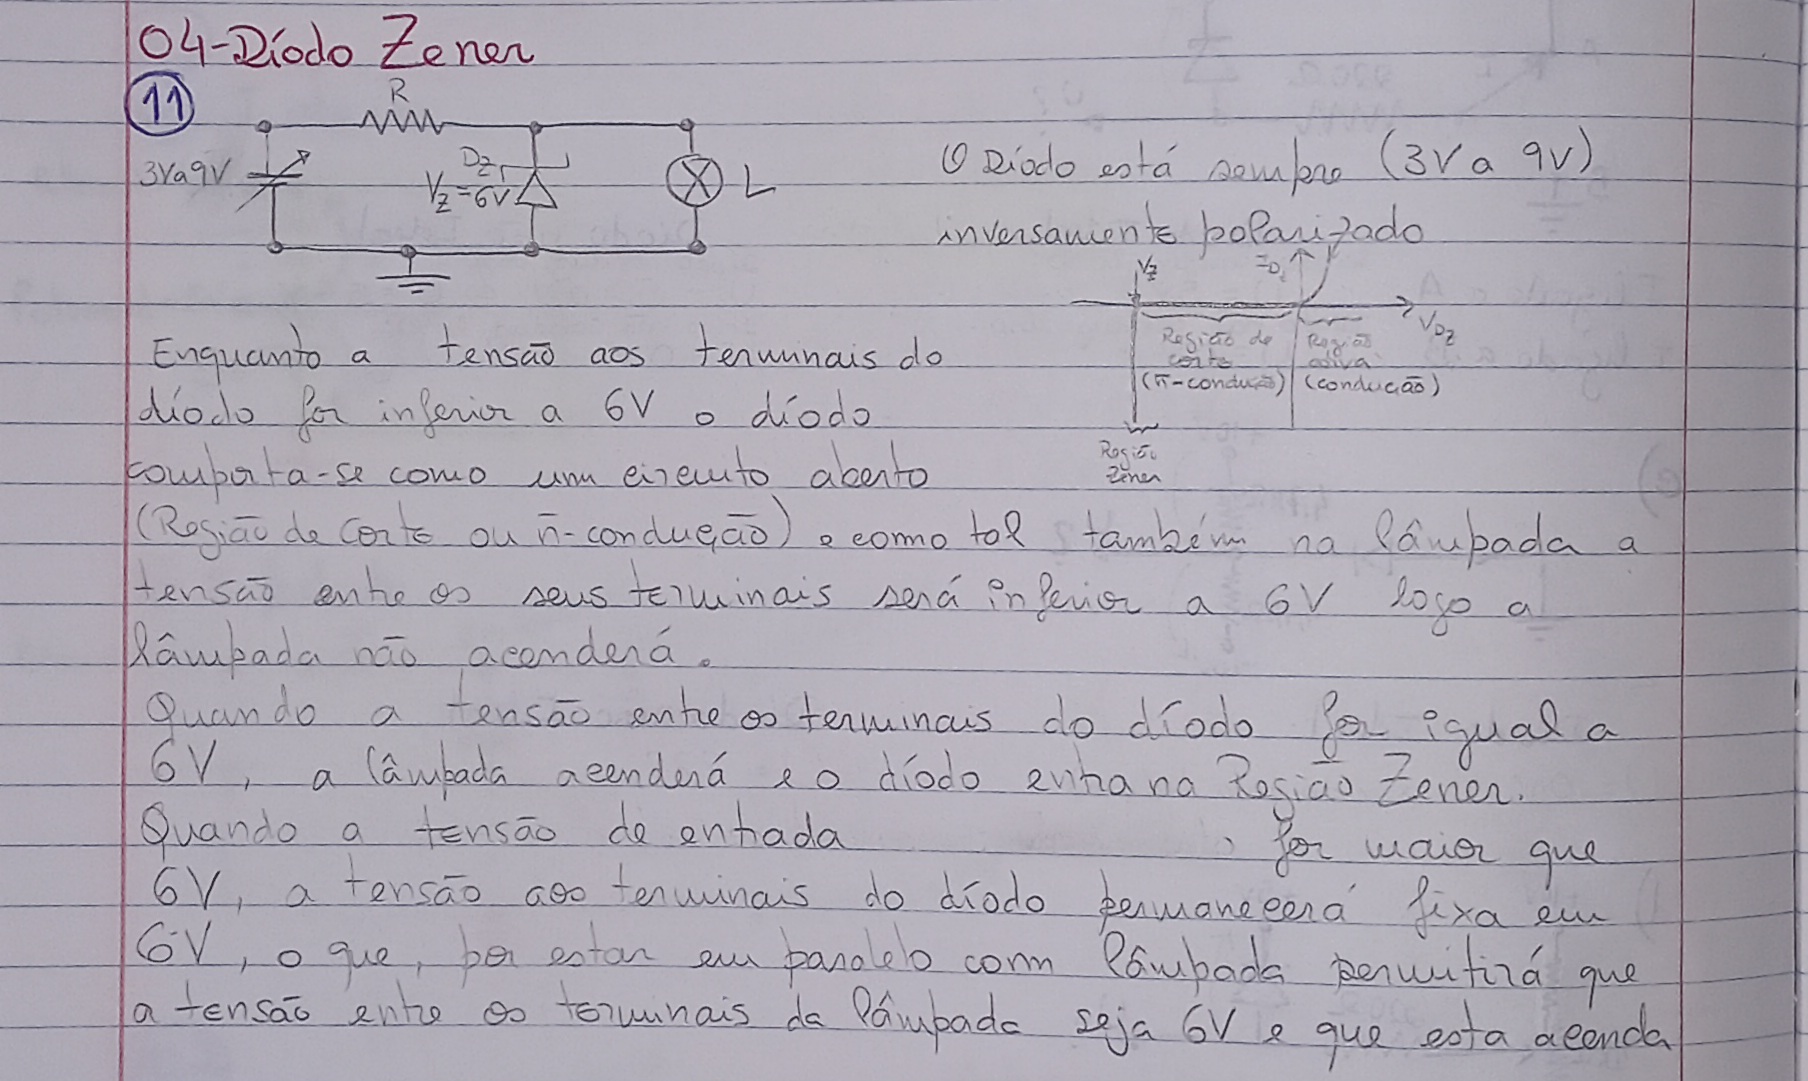 04-Díodo Zener
11
R
3Va9V
Dz
Vz=6V
L
O Díodo está sempre (3V a 9V)
inversamente polarizado
Vz
IDz
VDz
Região de
corte
(ñ-condução)
Região
ativa
(condução)
Região
Zener
Enquanto a tensão aos terminais do
díodo for inferior a 6V o díodo
comporta-se como um circuito aberto
(Região de Corte ou ñ-condução) e como tal também na lâmpada a
tensão entre os seus terminais será inferior a 6V logo a
lâmpada não acenderá.
Quando a tensão entre os terminais do díodo for igual a
6V, a lâmpada acenderá e o díodo entra na Região Zener.
Quando a tensão de entrada for maior que
6V, a tensão aos terminais do díodo permanecerá fixa em
6V, o que, por estar em paralelo com lâmpada permitirá que
a tensão entre os terminais da lâmpada seja 6V e que esta acenda